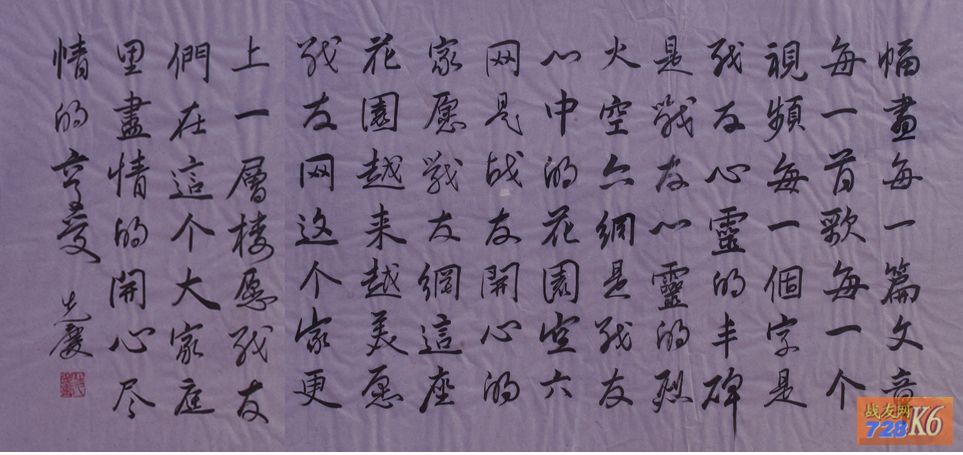 幅畫每一篇文章
每一首歌每一个
視頻每一個字是
战友心靈的丰碑
是戰友心靈的烈
火空六網是战友
心中的花园空六
网是战友開心的
家愿戰友網這座
花園越来越美愿
战友网这个家更
上一層楼愿战友
們在這个大家庭
里盡情的開心尽
情的享受
战友网
728
K6